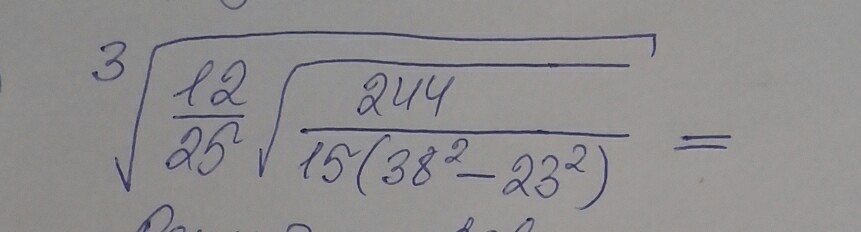 ∛(12/25 √(244/(15(38² − 23²)))) =